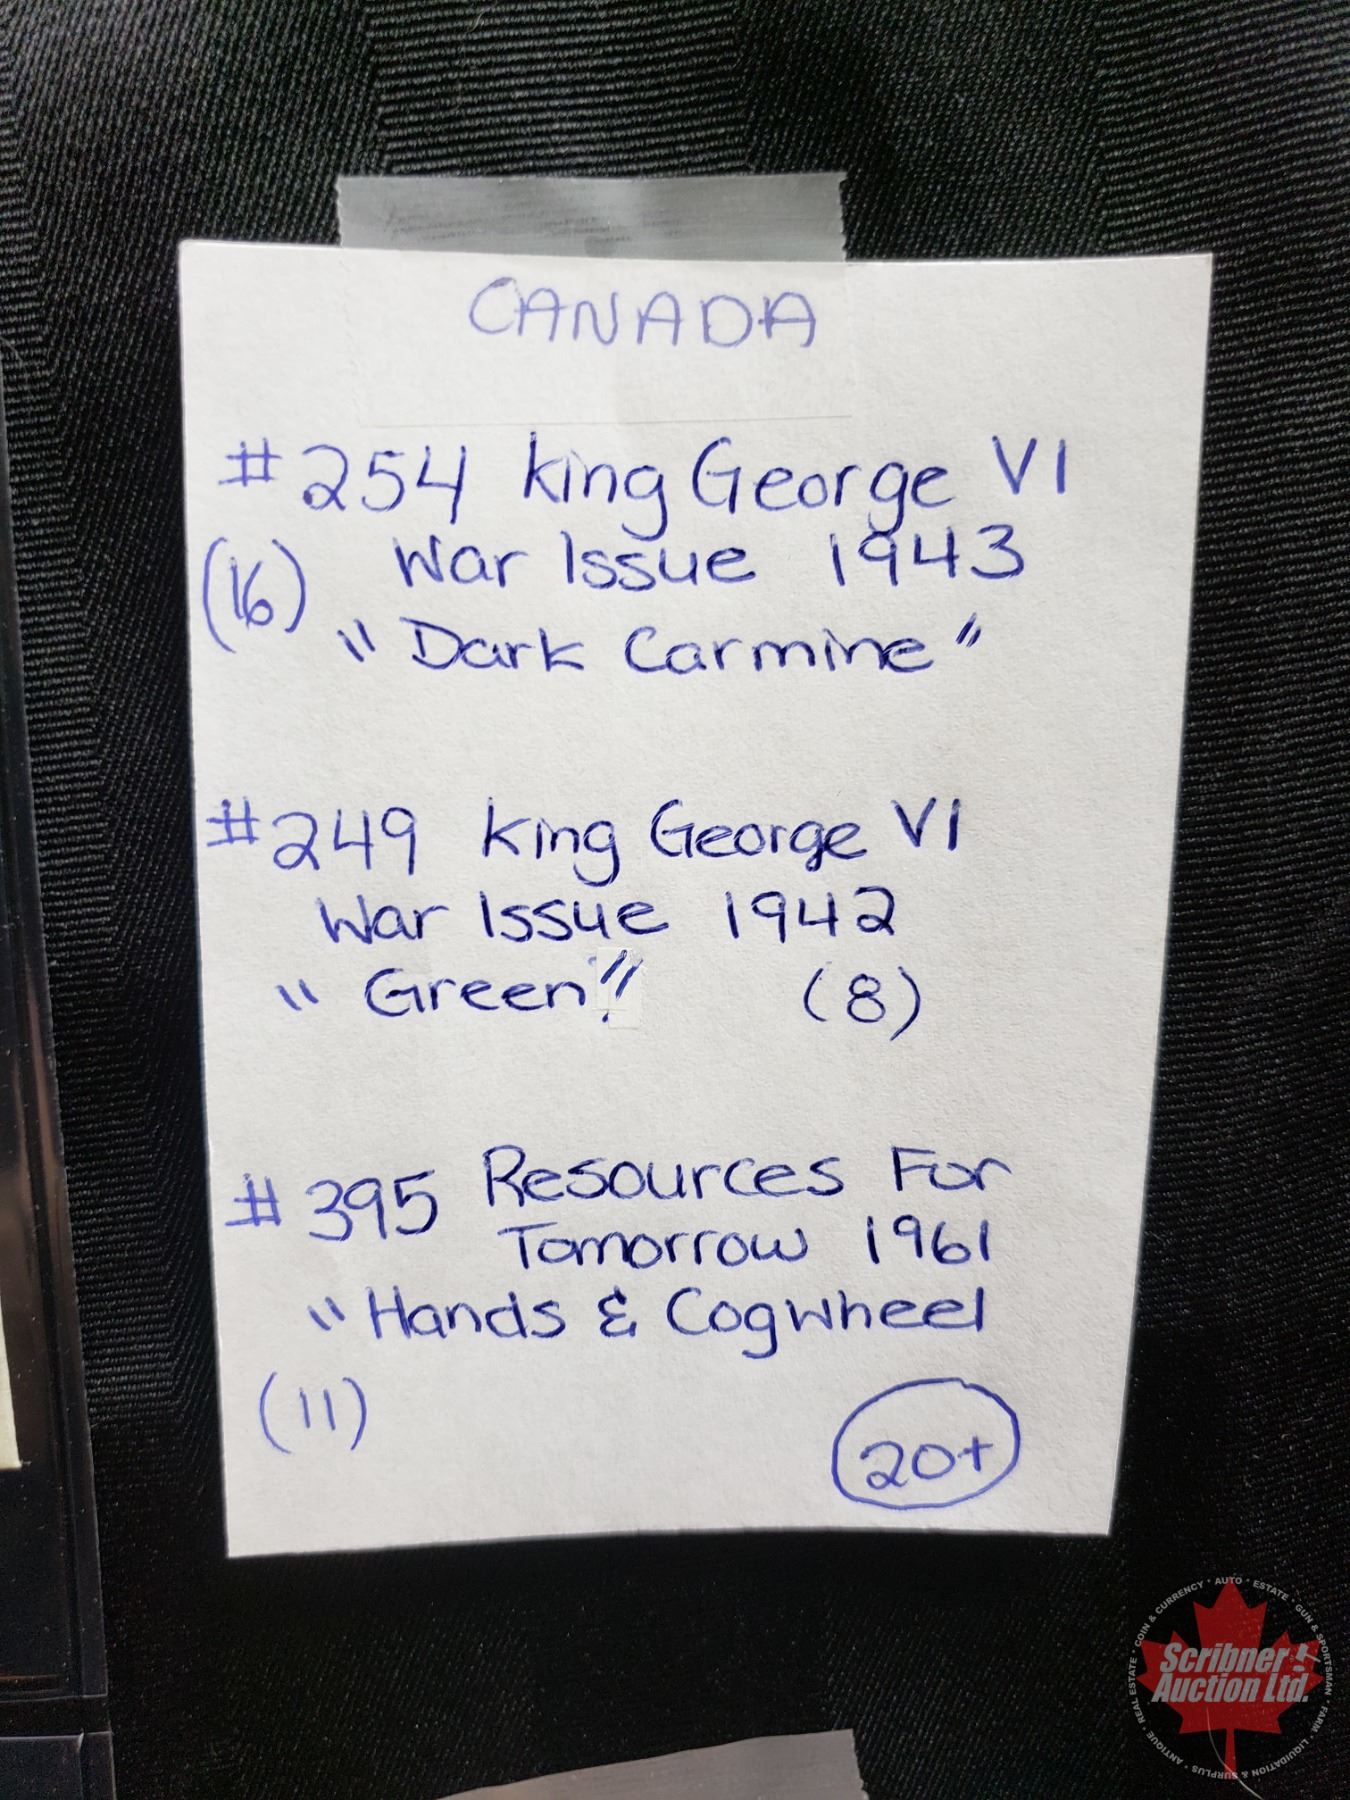 CANADA
#254 King George VI
(16) War Issue 1943
"Dark Carmine"
#249 King George VI
War Issue 1942
"Green" (8)
#395 Resources For
Tomorrow 1961
"Hands & Cogwheel
(11)
20+
Scribner
Auction Ltd.
ANTIQUE • REAL ESTATE • COIN & CURRENCY • AUTO • ESTATE • GUN & SPORTSMAN • FARM • LIQUIDATION & SURPLUS •